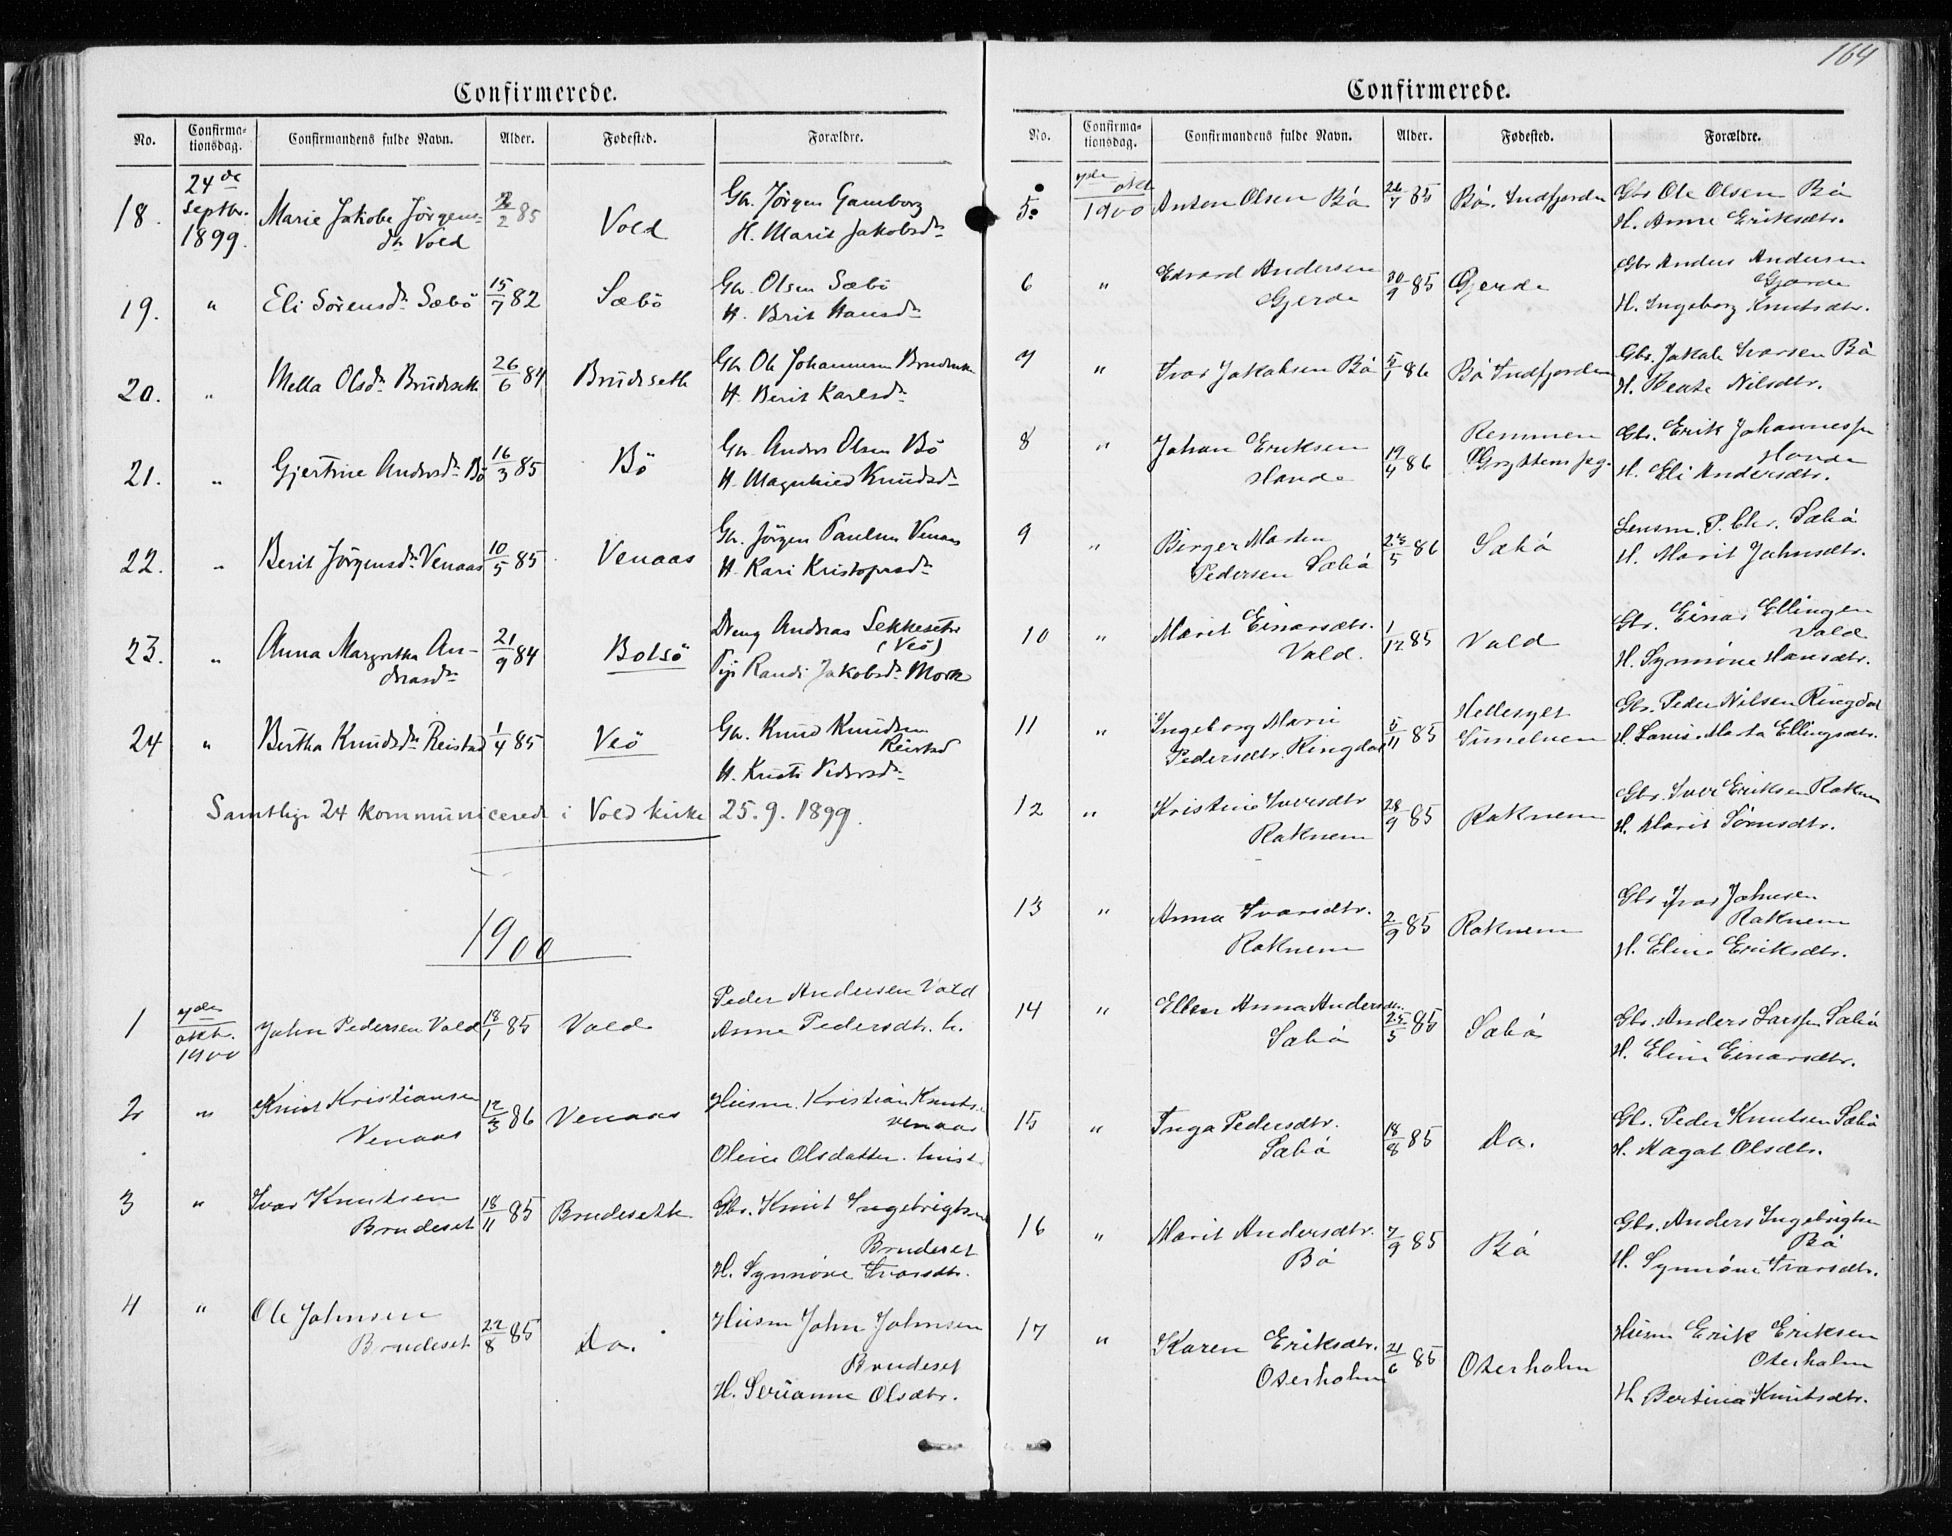 164
Confirmerede.
No. Confirma-tionsdag. Confirmandens fulde Navn. Alder. Fødested. Forældre.
18. 24de Septbr. 1899. Marie Jakobe Jörgens-
dr Vold 2/2 85 Vold Gbr. Jörgen Gamborg
H. Marit Jakobsdr
19. " Eli Sörensdr Sæbö 15/7 82 Sæbö Gbr. Olsen Sæbö
H. Brit Hansdr
20. " Mella Olsdr Brudeseth 26/6 84 Brudeseth Gbr Ole Johannesen Brudeseth
H. Berit Karlsdr
21. " Gjertine Andersdr Bö 16/3 85 Bö Gbr. Anders Olsen Bö
H. Magnhild Knudsdr
22. " Berit Jörgensdr Venaas 10/5 85 Venaas Gbr. Jörgen Paulsen Venaas
H. Kari Kristofersdr
23. " Anna Margretha An-
dreasdr 21/9 84 Bolsö Dreng Andreas Sekkeseter
(Veö)
Pige Randi Jakobsdr Mork
24 " Bertha Knudsdr Reistad 1/4 85 Veö Gbr. Knud Knudsen
Reistad
H. Kristi Pedersdr
Samtlige 24 kommunicerede i Vold kirke 25.9.1899.
1900
1 7de oktb. 1900 John Pedersen Vold 18/1 85 Vold Peder Andersen Vold
Anne Pedersdtr. h.
2 " Knut Kristiansen
Venaas 12/3 86 Venaas Husm. Kristian Knuts.
Venaas
Oline Olsdatter. hust
3 " Ivar Knutsen
Brudeset 18/11 85 Brudeseth Gbr. Knut Ingebrigtsen
Brudeset
H. Synnöve Ivarsdtr.
4 " Ole Johnsen
Brudeset 22/8 85 Do. Husm John Johnsen
Brudeset
H. Serianne Olsdtr.
Confirmerede.
No. Confirma-tionsdag. Confirmandens fulde Navn. Alder. Fødested. Forældre.
5. 7de okt 1900 Anton Olsen Bö 26/7 85 Bö. Indfjorden Gbr Ole Olsen Bö
H. Anne Eriksdtr.
6 " Edvard Andersen
Gjerde 30/9 85 Gjerde Gbr Anders Andersen
Gjerde
H. Ingeborg Knutsdtr.
7 " Ivar Jakobsen Bö 5/1 86 Bö Indfjorden Gbr. Jakob Ivarsen Bö
H. Beate Nilsdtr.
8 " Johan Eriksen
Hande 19/4 86 Remmen
Gryttens pg. Gbr. Erik Johannessen
Hande
H. Eli Andersdtr.
9 " Birger Marten
Pedersen Sæbö 23/5 86 Sæbö Lensm. P. Chr. Sæbö
H. Marit Johnsdtr.
10 " Marit Einarsdtr.
Vold. 1/12 85 Vold Gbr. Einar Ellingsen
Vold
H. Synnöve Hansdtr.
11 " Ingeborg Marie
Pedersdtr. Ringdal 5/11 85 Hellesylt
Simelven Gbr. Peder Nilsen Ringdal
H. Lovise Marta Ellingsdtr.
12 " Kristine Iversdtr
Raknem 28/9 85 Raknem Gbr. Iver Eriksen Raknem
H. Marit Sörnsdtr.
13 " Anna Ivarsdtr.
Raknem 2/9 85 Raknem Gbr Ivar Johnsen
Raknem
H. Eline Eriksdtr.
14 " Ellen Anna Andersdtr.
Sæbö 25/5 85 Sæbö Gbr. Anders Larssen Sæbö
H. Eline Einarsdtr.
15 " Inga Pedersdtr.
Sæbö 18/8 85 Do. Gbr. Peder Knutsen Sæbö
H. Magat Olsdtr.
16 " Marit Andersdtr.
Bö 7/9 85 Bö Gbr. Anders Ingebrigtsen
Bö
H. Synnöve Ivarsdtr.
17 " Karen Eriksdtr.
Osterholm 21/6 85 Osterholm Husm Erik Eriksen
Osterholm
H. Bertina Knutsdtr.